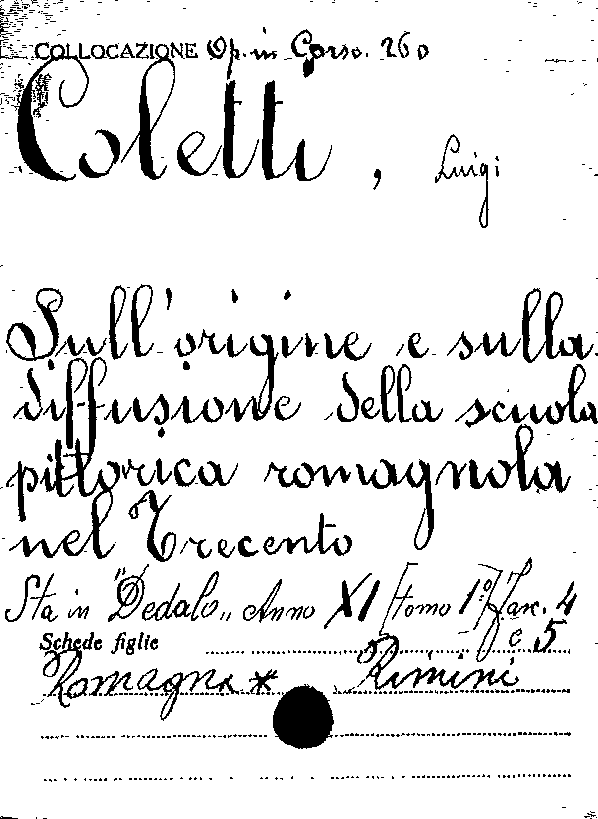 COLLOCAZIONE Op. in Corso. 260
Coletti, Luigi
Sull'origine e sulla
diffusione della scuola
pittorica romagnola
nel Trecento
Sta in "Dedalo" Anno XI [tomo 1°] fasc. 4
Schede figlie e 5
Romagna * Rimini